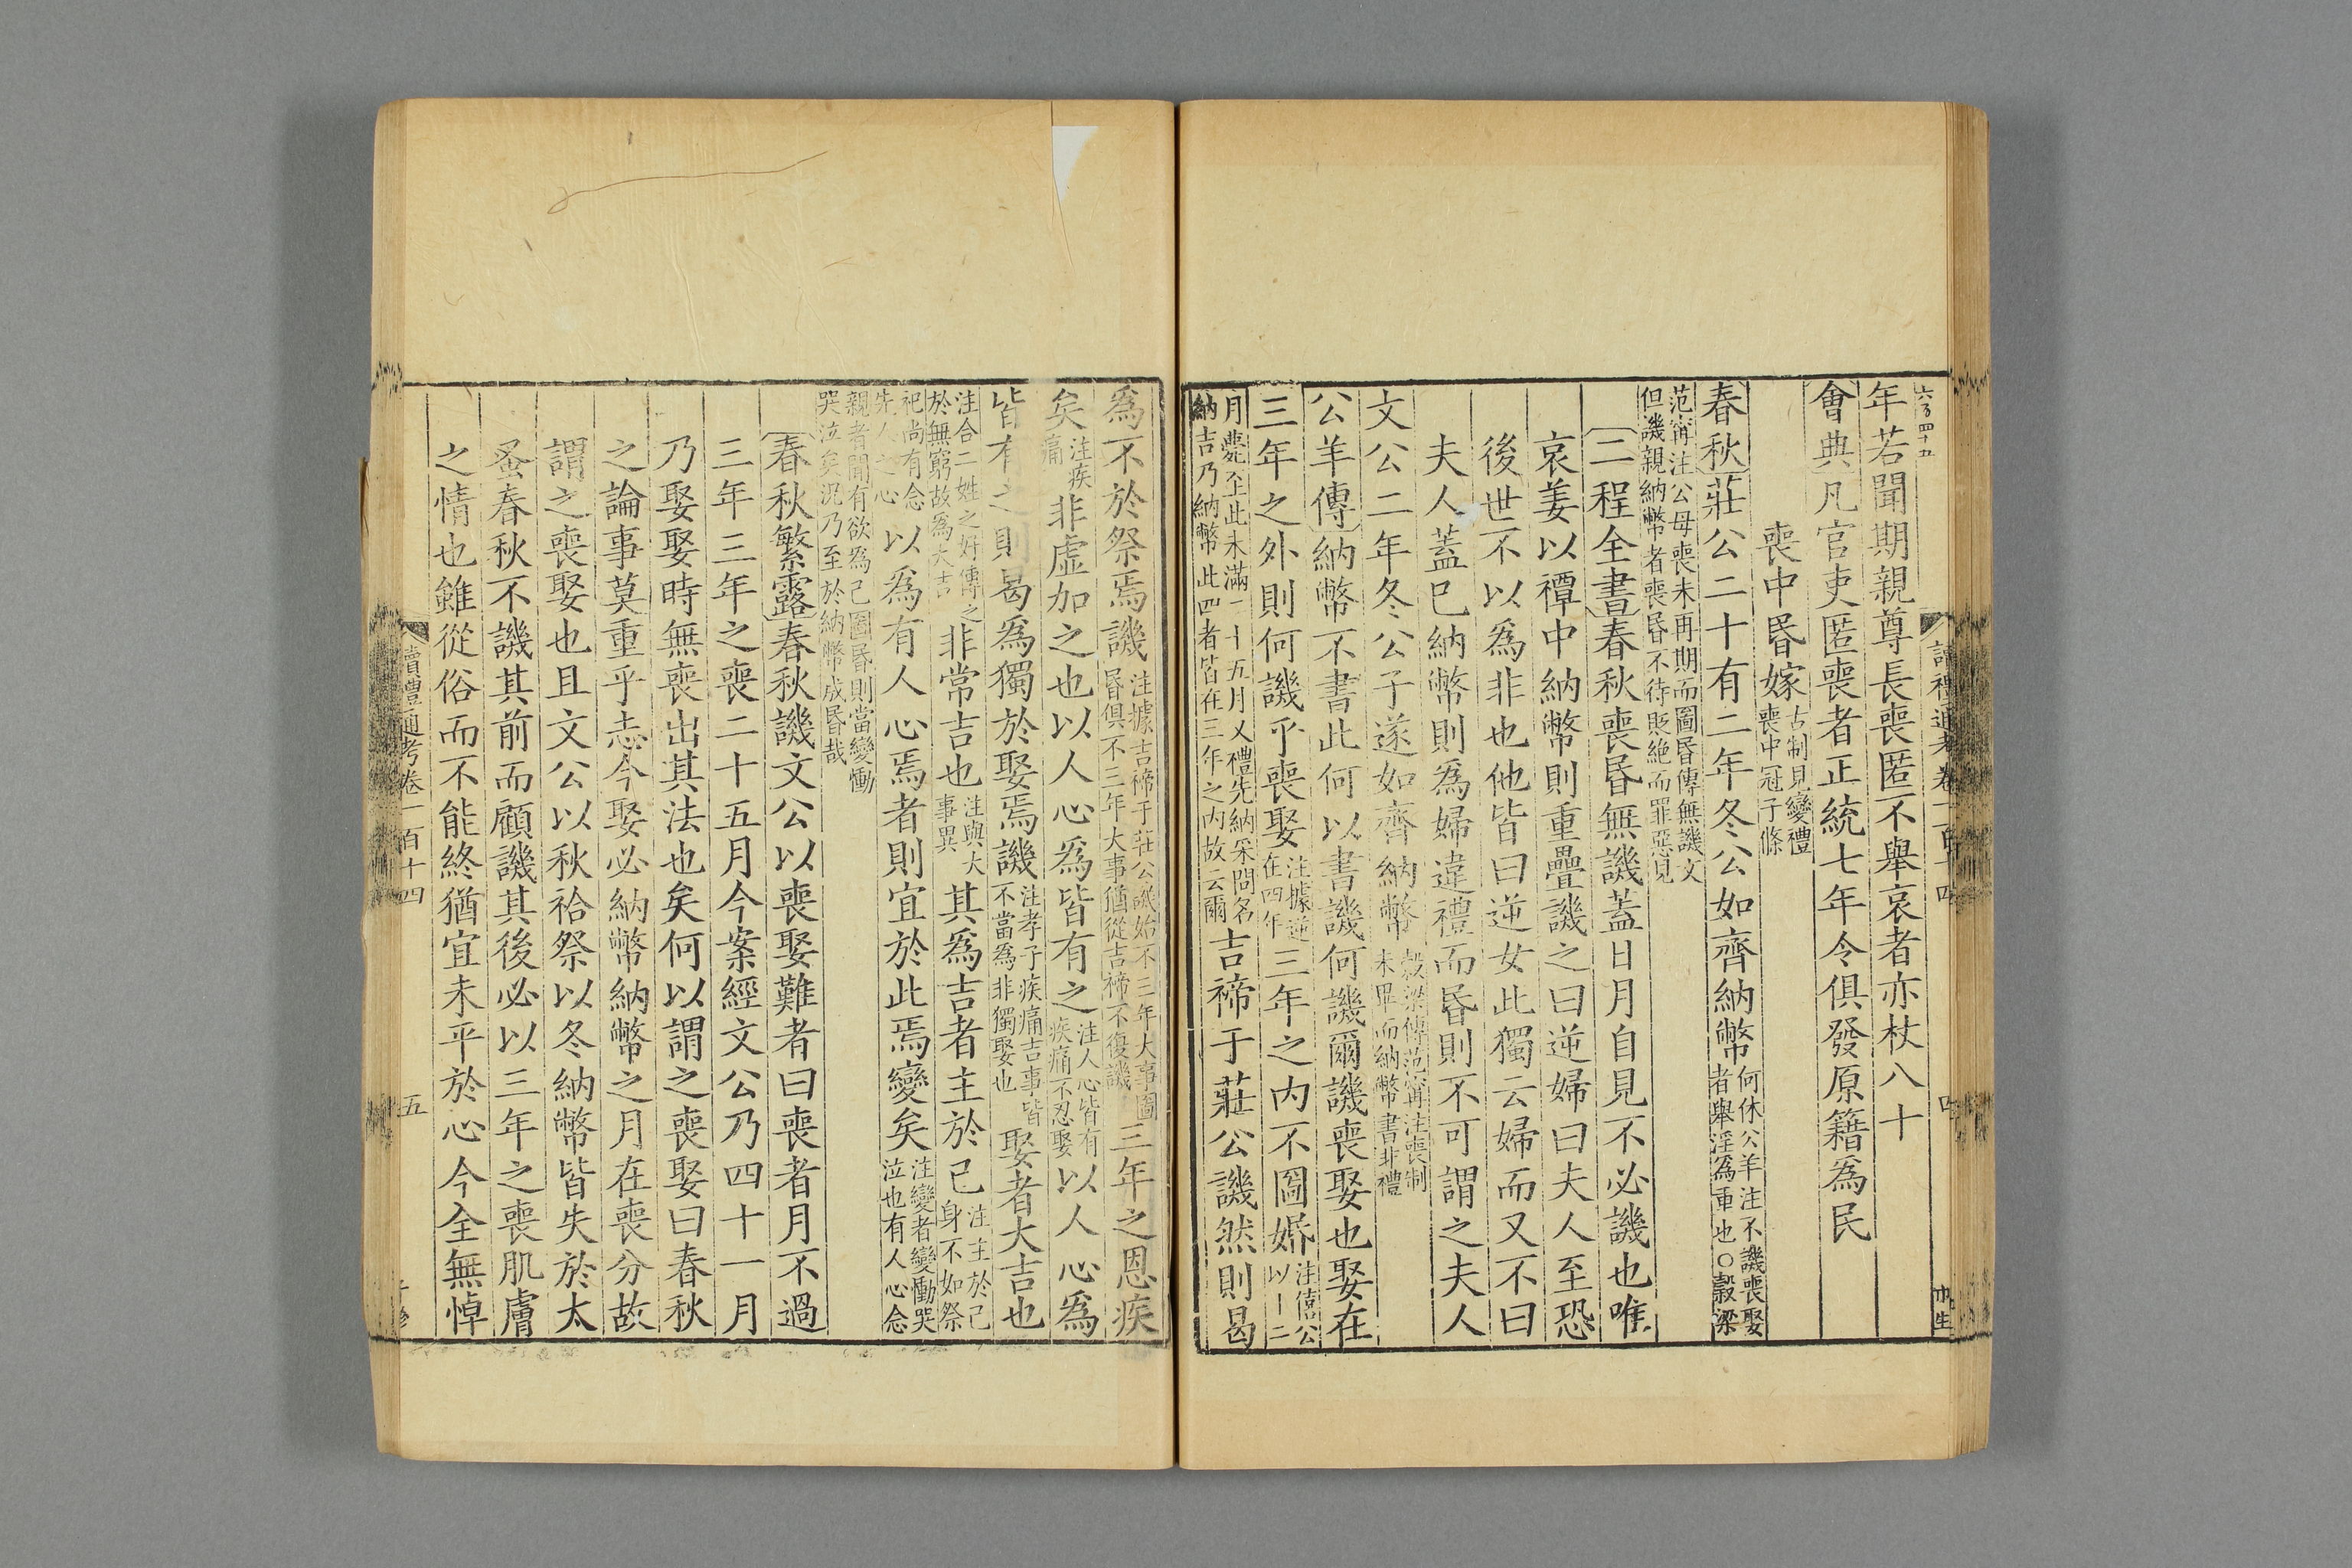 年若聞期親尊長喪匿不舉哀者亦杖八十
會典凡官吏匿喪者正統七年令俱發原籍爲民
喪中昏嫁古制見變禮喪中冠子條
春秋莊公二十有二年冬公如齊納幣何休公羊注不譏喪娶者舉淫爲重也○穀梁
范甯注公母喪未再期而圖昏傳無譏文但譏親納幣者喪昏不待貶絶而罪惡見
二程全書春秋喪昏無譏蓋日月自見不必譏也唯
哀姜以禫中納幣則重疊譏之曰逆婦曰夫人至恐
後世不以爲非也他皆曰逆女此獨云婦而又不曰
夫人蓋已納幣則爲婦違禮而昏則不可謂之夫人
文公二年冬公子遂如齊納幣穀梁傳范甯注喪制未畢而納幣書非禮
公羊傳納幣不書此何以書譏何譏爾譏喪娶也娶在
三年之外則何譏乎喪娶注據逆在四年三年之內不圖婚注僖公以十二
月薨至此未滿二十五月又禮先納采問名納吉乃納幣此四者皆在三年之內故云爾吉禘于莊公譏然則曷
爲不於祭焉譏注據吉禘于莊公譏始不三年大事圖昏俱不三年大事猶從吉禘不復譏三年之恩疾
矣注疾痛非虛加之也以人心爲皆有之注人心皆有疾痛不忍娶以人心爲
皆有之則曷爲獨於娶焉譏注孝子疾痛吉事皆不當爲非獨娶也娶者大吉也
注合二姓之好傳之於無窮故爲大吉非常吉也注與大事異其爲吉者主於己注主於己身不如祭
祀尚有念先人之心以爲有人心焉者則宜於此焉變矣注變者變慟哭泣也有人心念
親者聞有欲爲己圖昏則當變慟哭泣矣況乃至於納幣成昏哉
春秋繁露春秋譏文公以喪娶難者曰喪者月不過
三年三年之喪二十五月今案經文公乃四十一月
乃娶娶時無喪出其法也矣何以謂之喪娶曰春秋
之論事莫重乎志今娶必納幣納幣之月在喪分故
謂之喪娶也且文公以秋祫祭以冬納幣皆失於太
蚤春秋不譏其前而顧譏其後必以三年之喪肌膚
之情也雖從俗而不能終猶宜未平於心今全無悼
讀禮通考卷一百十四
五